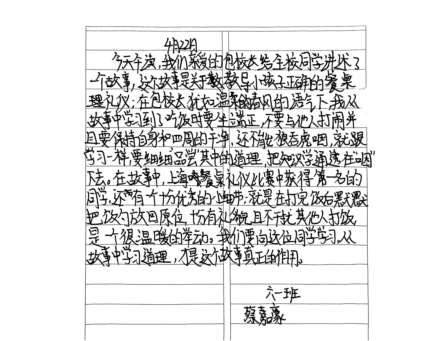 4月22日
今天午读,我们亲爱的包校长给全校同学讲述了
一个故事,这个故事是关于教导小孩子正确的餐桌
理礼仪;在包校长犹如温柔的春风的语气下,我从
故事中学习到了吃饭时要坐端正,不要与他人打闹并
且要保持自身和四周的干净,还不能狼吞虎咽,就跟
学习一样,要细细品尝其中的道理,把知识学通透在咽
下去。在故事中,上海餐桌礼仪比赛中获得第一名的
同学,还有一个十分优秀的小细节,就是在打完饭后默默
把饭勺放回原位,十分有礼貌且不扰其他人打饭
是一个很温暖的举动。我们要向这位同学学习,从
故事中学习道理,才是这个故事真正的作用。
六一班
蔡嘉豪